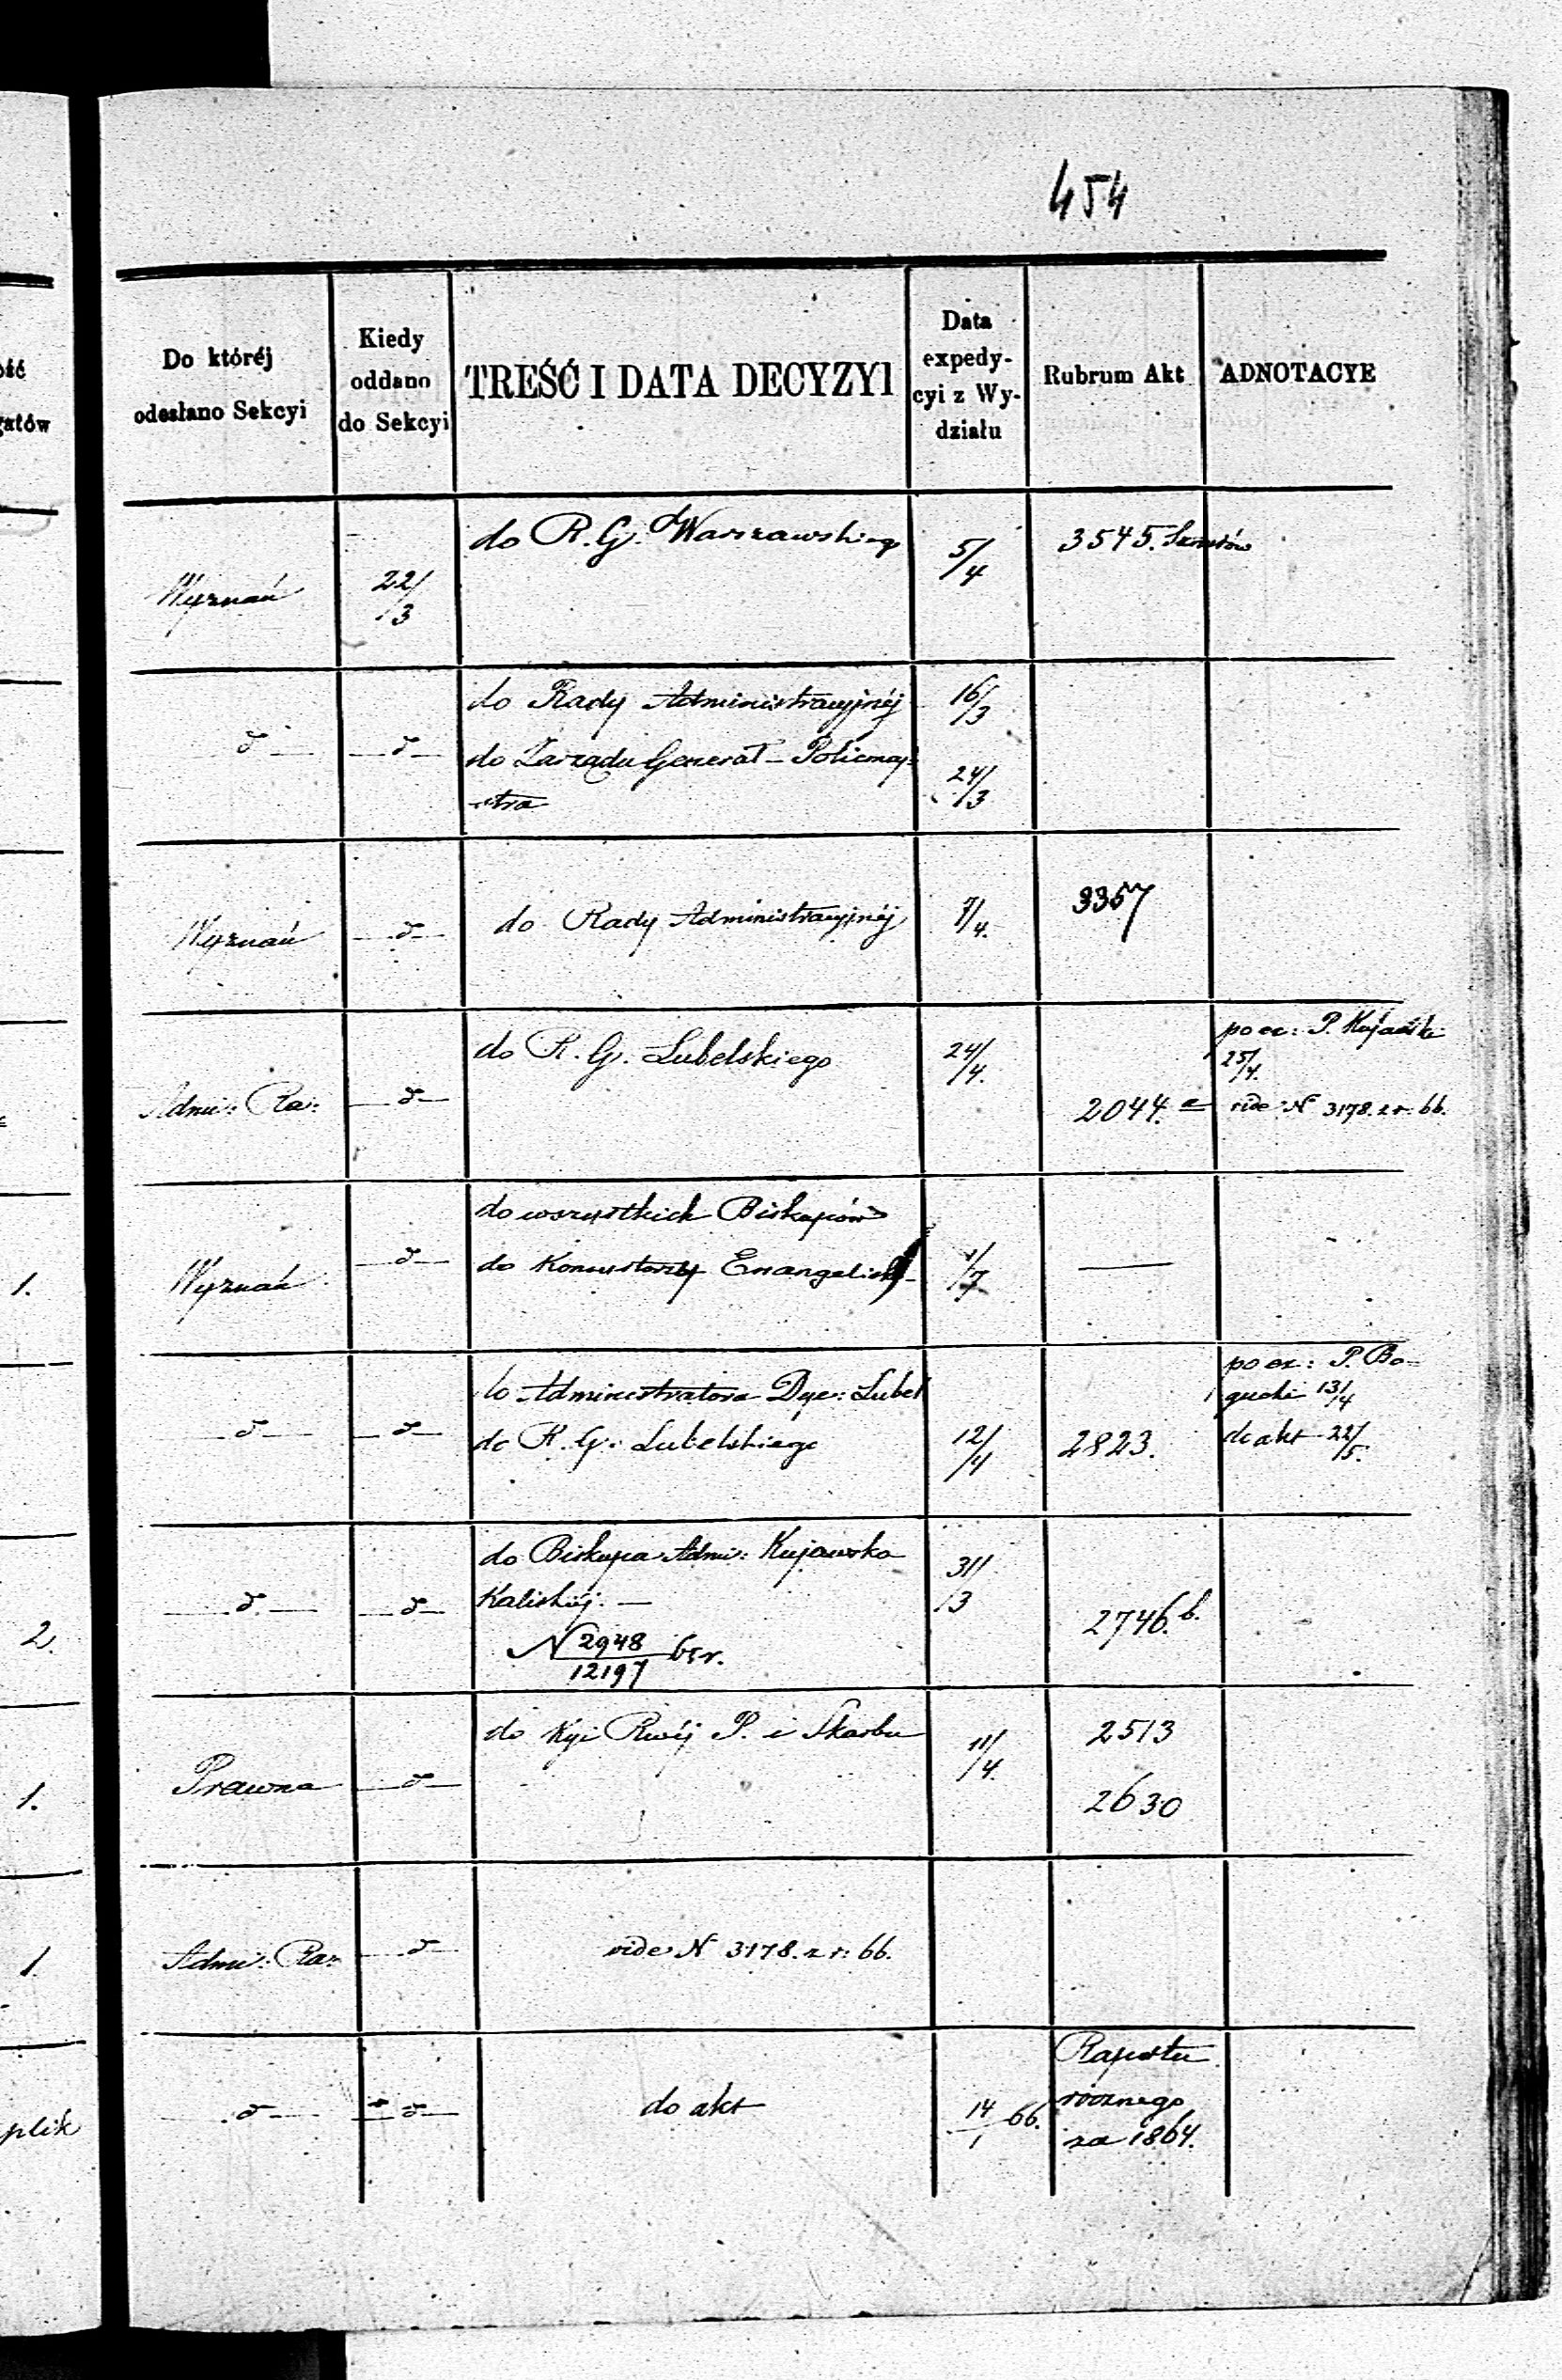 454
ość
gatów
Do któréj
odesłano Sekcyi
Kiedy
oddano
do Sekcyi
TREŚĆ I DATA DECYZYI
Data
expedy-
cyi z Wy-
działu
Rubrum Akt
ADNOTACYE
Wyznań
22/3
do R. G. Warszawskiego
5/4
3545.
d
d
do Rady Administracyjnéj
16/3
do Zarządu Generał-Policmaj-
stra
24/3
Wyznań
d
do Rady Administracyjnéj
7/4.
3357
Admi: Ra:
d
do R. G. Lubelskiego
24/4.
2044. a
po ex: P.
25/4.
vide N 3178. z r. 66.
1.
Wyznań
d
do wszystkich Biskupów
do Konsystorzy Ewangelick
1/7
d
d
do Administratora Dye: Lubel
do R. G. Lubelskiego
12/4
2823.
po ex: P. Bo-
gucki 13/4
do akt 22/5.
2.
d
d
do Biskupa Admi: Kujawsko
Kaliskiéj.
N 2948/12197 65 r.
31/3
2746. b.
1.
Prawna
d
do Kyi Rwéj P. i Skarbu
11/4.
2513
2630
1.
Admi: Ra:
d
vide N 3178. z r. 66.
plik
d
d
do akt
14/1 66.
Raportu
rocznego
za 1864.